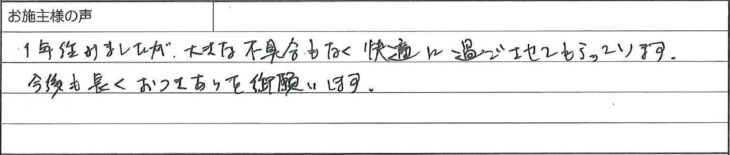 お施主様の声
1年住みましたが、大きな不具合もなく快適に過ごさせてもらっています。
今後も長くおつきあいを御願いします。